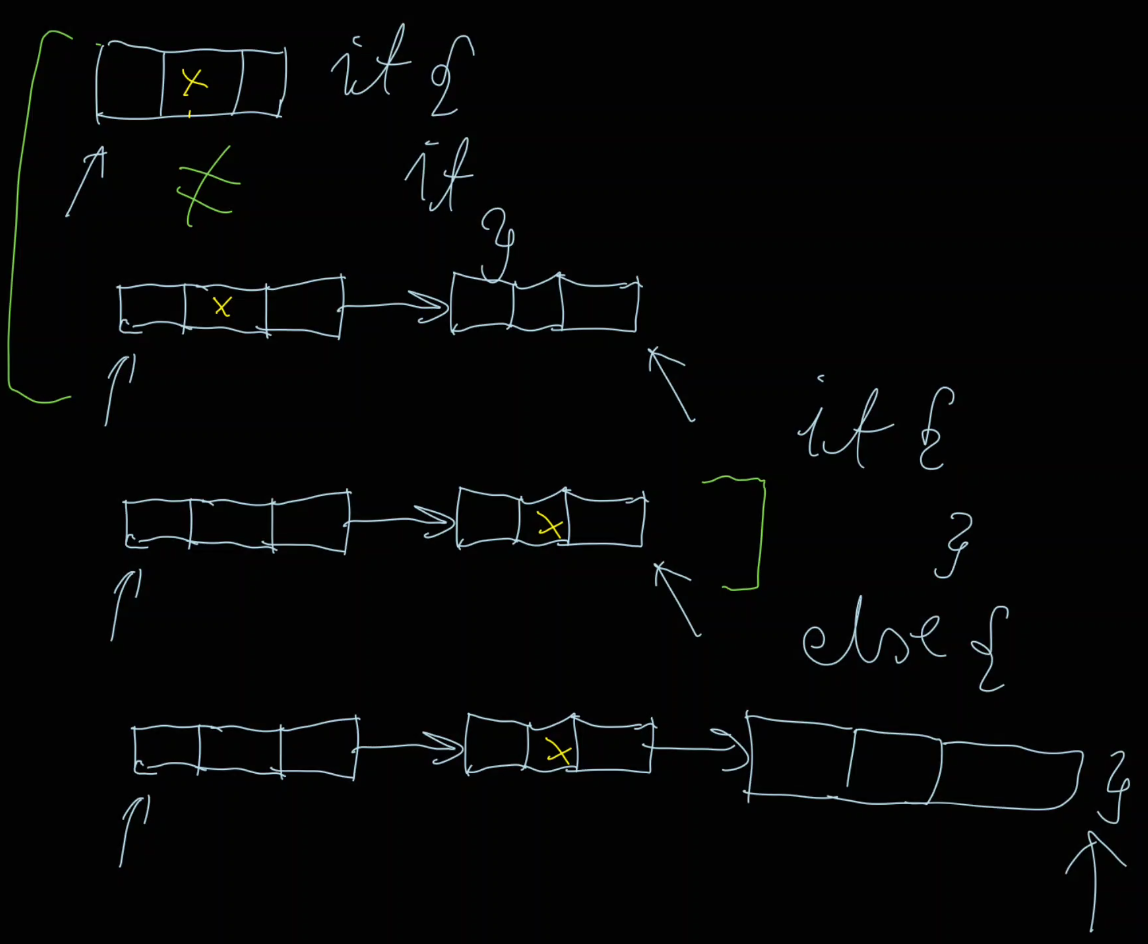 x if {
≠ if
}
x
if {
x
}
else {
x }